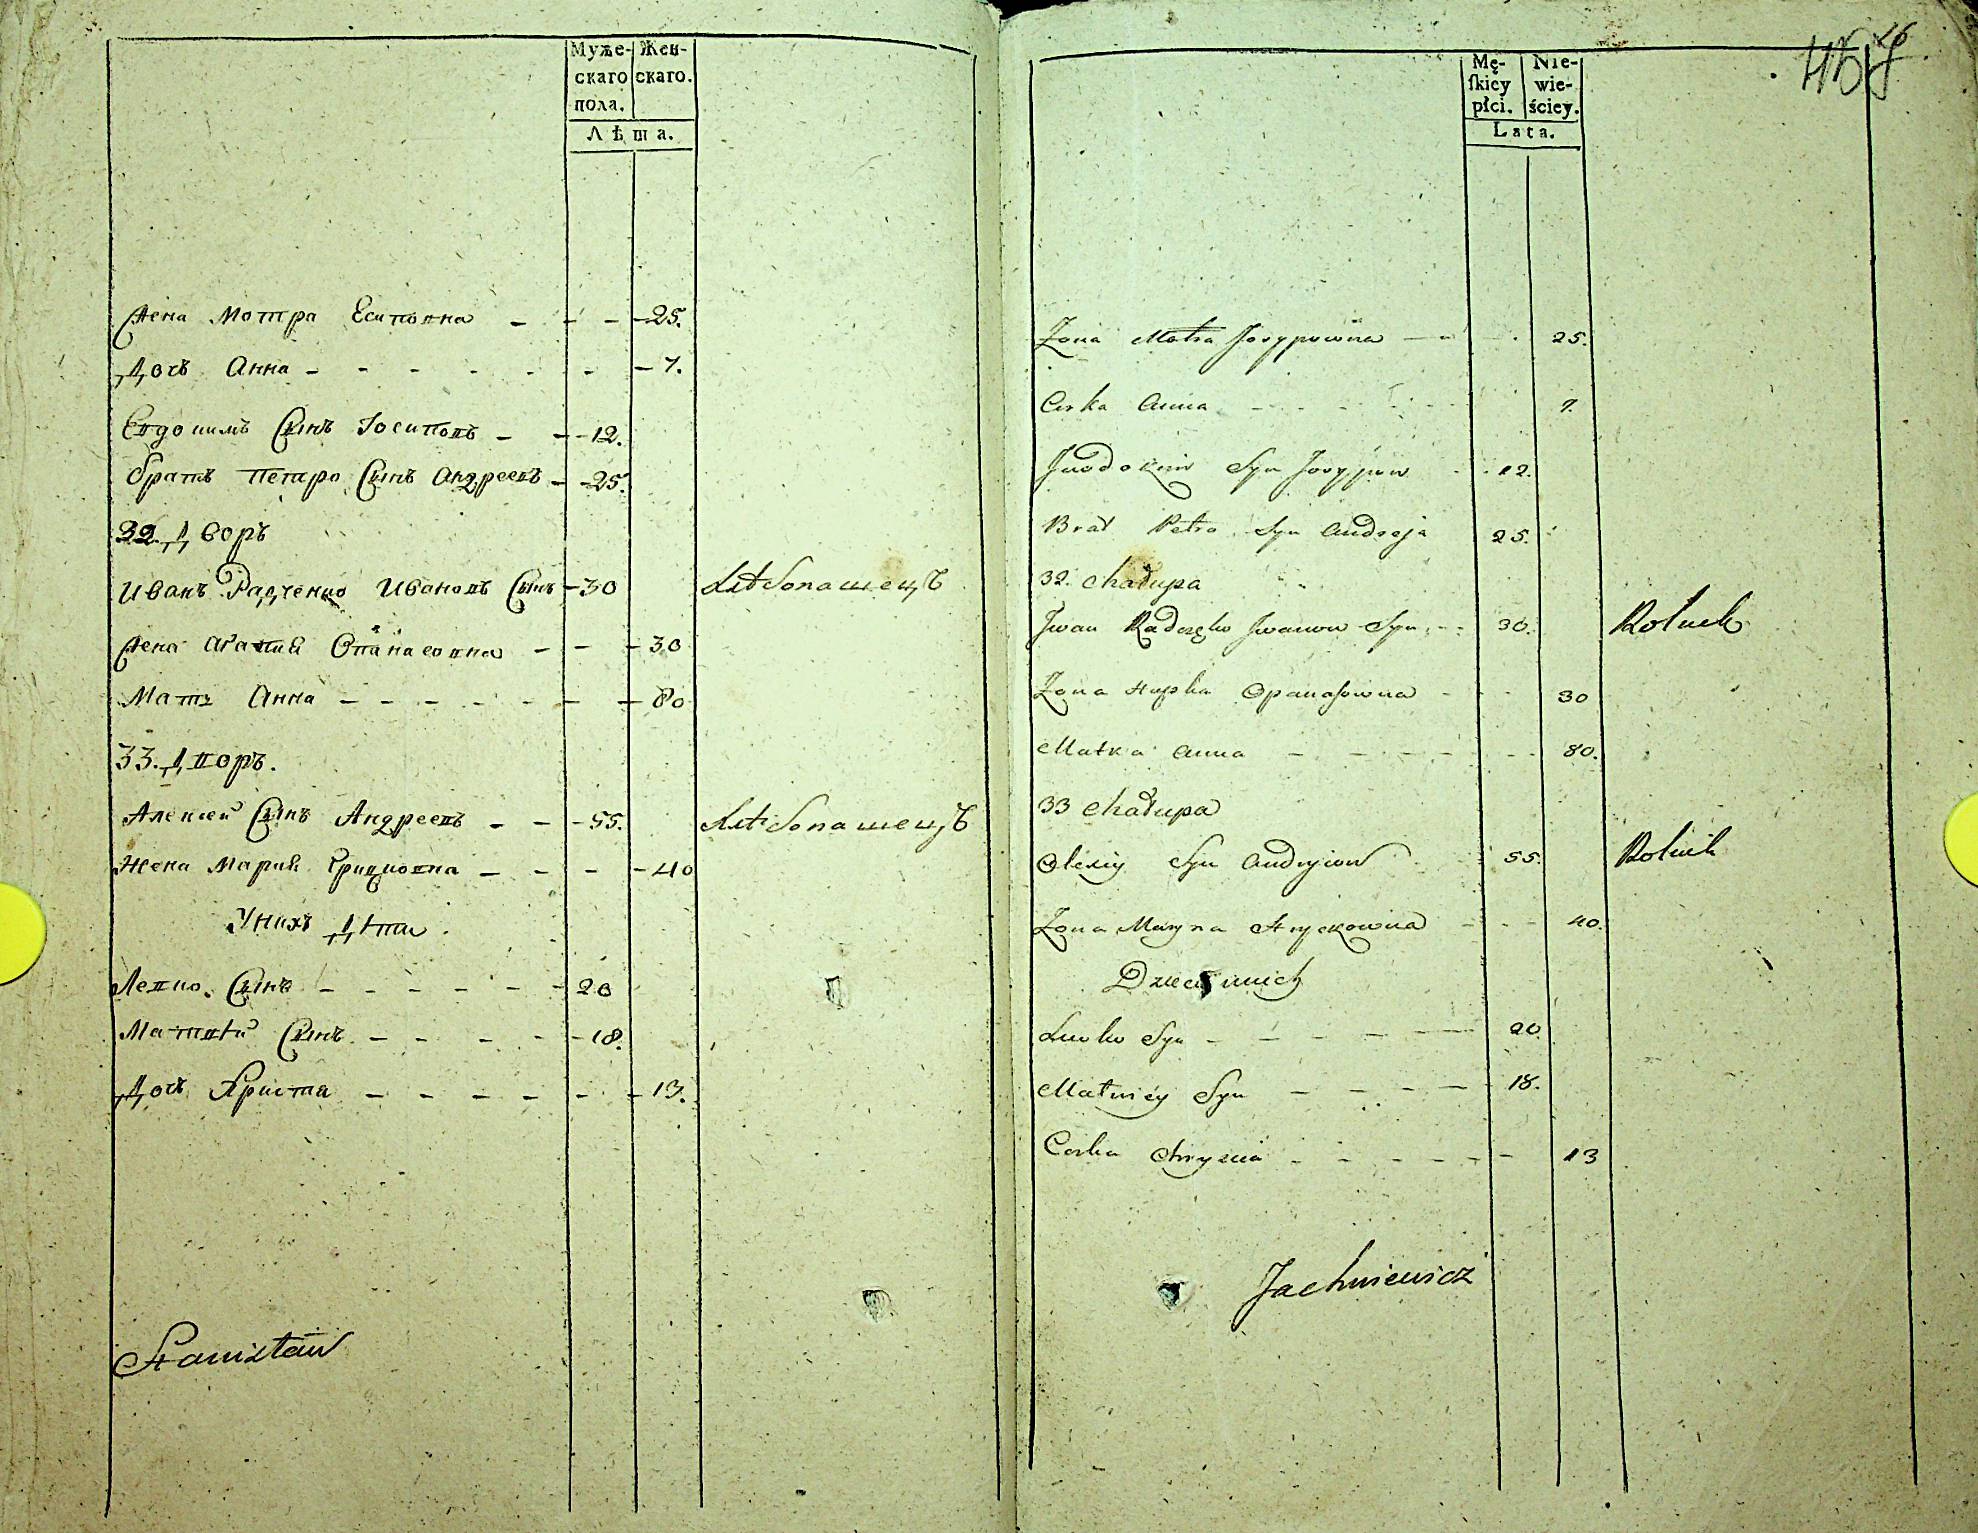 Муже-
скаго
пола.
Жен-
скаго.
Лѣта.
Жена Мотра Есиповна - - - 25.
Дочь Анна - - - - - - 7.
Евдокимъ Сынъ Іосиповъ - - 12.
Братъ Петро Сынъ Андреевъ - 25.
32. Дворъ
Иванъ Радченко Ивановъ Сынъ - 30 Хлѣбопашецъ
Жена Агапия Опанасовна - - - 30
Мать Анна - - - - - - 80
33. Дворъ.
Алексей Сынъ Андреевъ - - - 55. Хлѣбопашецъ
Жена Мария Грицковна - - - - 40
У нихъ Дѣти.
Левко Сынъ - - - - - - 20
Матвѣй Сынъ - - - - - 18.
Дочь Христя - - - - - - 13.
Stanisław
Mę-
skiey
płci.
Nie-
wie-
ściey.
Lata.
Zona Motra Josypowna - - - 25.
Corka Anna - - - - - 7.
Jwdokim Syn Josypow - - 12.
Brat Petro Syn Andreja 25.
32. Chałupa
Jwan Radczęko Jwanow Syn - - 30. Rolnik
Zona Hapka Opanasowna - - - 30
Matka Anna - - - - - - 80.
33 Chałupa
Olexiy Syn Andryiow 55. Rolnik
Zona Maryna Hryckowna - - - 40.
Dzieci unich
Lewko Syn - - - - - 20.
Matwiey Syn - - - - - 18.
Corka Chrysia - - - - - - 13
Jachniewicz